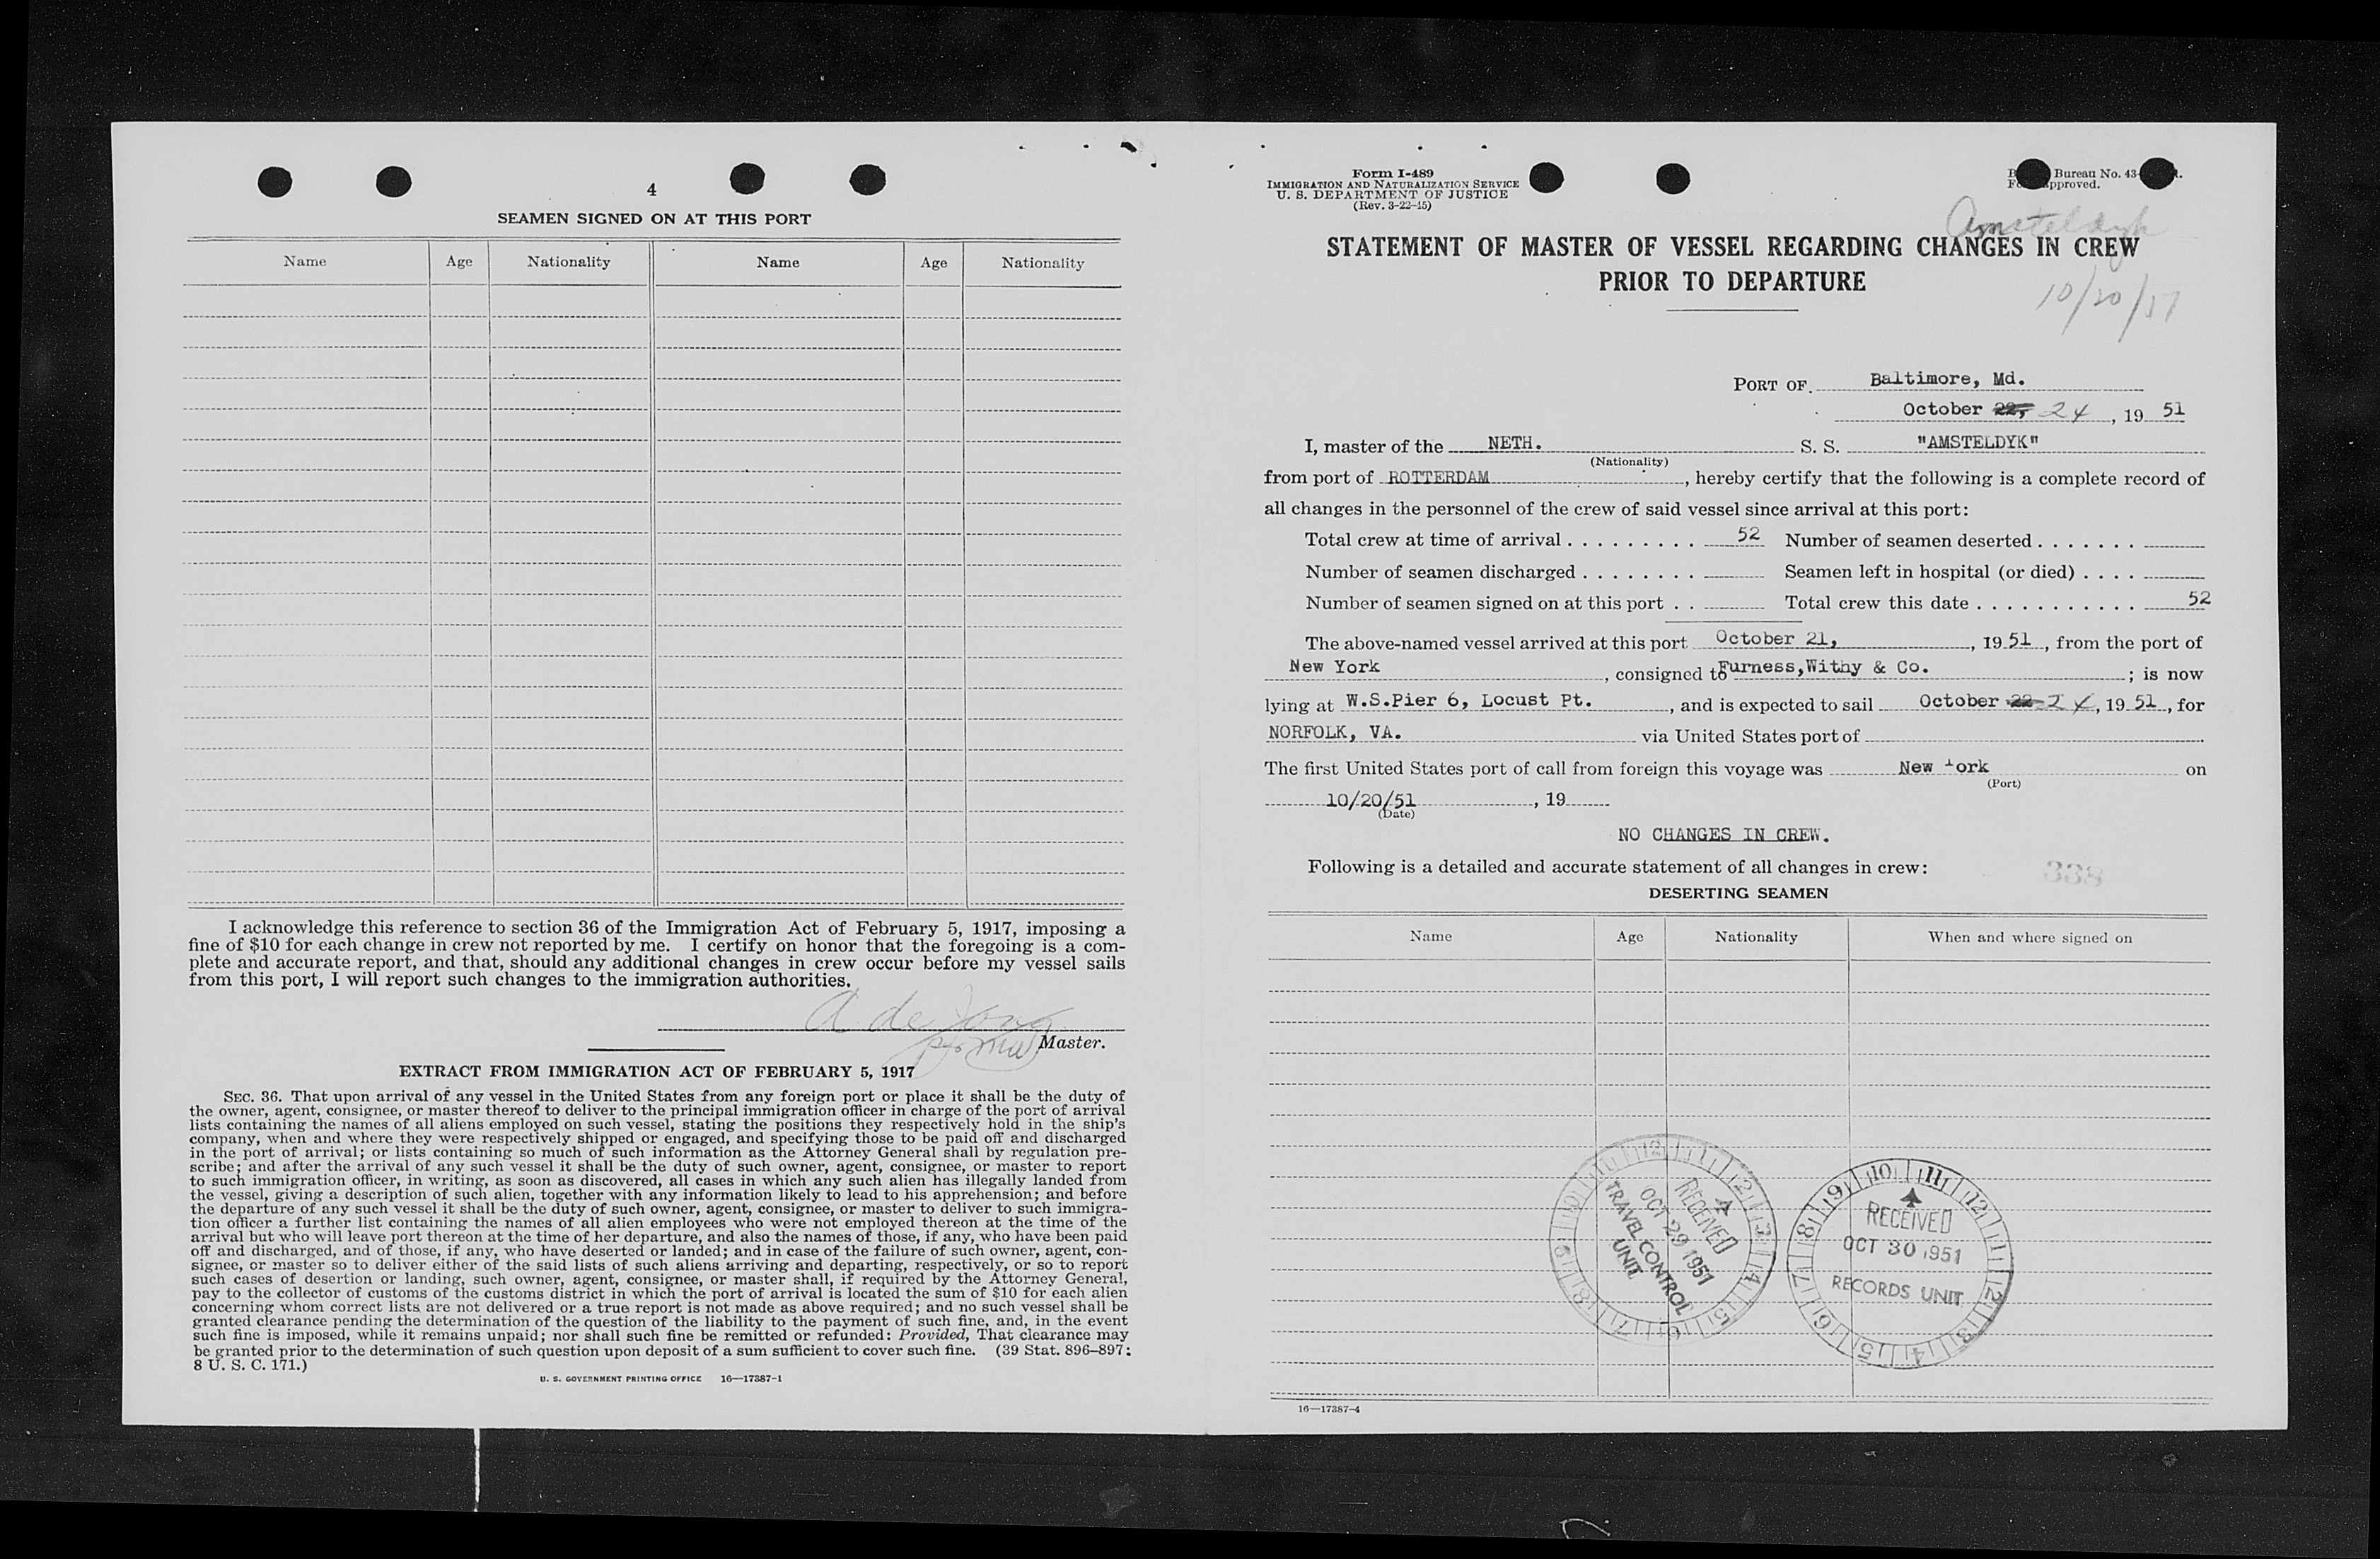 4
SEAMEN SIGNED ON AT THIS PORT
Name Age Nationality Name Age Nationality
I acknowledge this reference to section 36 of the Immigration Act of February 5, 1917, imposing a
fine of $10 for each change in crew not reported by me. I certify on honor that the foregoing is a com-
plete and accurate report, and that, should any additional changes in crew occur before my vessel sails
from this port, I will report such changes to the immigration authorities.
A de Jong
Master.
EXTRACT FROM IMMIGRATION ACT OF FEBRUARY 5, 1917
SEC. 36. That upon arrival of any vessel in the United States from any foreign port or place it shall be the duty of
the owner, agent, consignee, or master thereof to deliver to the principal immigration officer in charge of the port of arrival
lists containing the names of all aliens employed on such vessel, stating the positions they respectively hold in the ship's
company, when and where they were respectively shipped or engaged, and specifying those to be paid off and discharged
in the port of arrival; or lists containing so much of such information as the Attorney General shall by regulation pre-
scribe; and after the arrival of any such vessel it shall be the duty of such owner, agent, consignee, or master to report
to such immigration officer, in writing, as soon as discovered, all cases in which any such alien has illegally landed from
the vessel, giving a description of such alien, together with any information likely to lead to his apprehension; and before
the departure of any such vessel it shall be the duty of such owner, agent, consignee, or master to deliver to such immigra-
tion officer a further list containing the names of all alien employees who were not employed thereon at the time of the
arrival but who will leave port thereon at the time of her departure, and also the names of those, if any, who have been paid
off and discharged, and of those, if any, who have deserted or landed; and in case of the failure of such owner, agent, con-
signee, or master so to deliver either of the said lists of such aliens arriving and departing, respectively, or so to report
such cases of desertion or landing, such owner, agent, consignee, or master shall, if required by the Attorney General,
pay to the collector of customs of the customs district in which the port of arrival is located the sum of $10 for each alien
concerning whom correct lists are not delivered or a true report is not made as above required; and no such vessel shall be
granted clearance pending the determination of the question of the liability to the payment of such fine, and, in the event
such fine is imposed, while it remains unpaid; nor shall such fine be remitted or refunded: Provided, That clearance may
be granted prior to the determination of such question upon deposit of a sum sufficient to cover such fine. (39 Stat. 896–897;
8 U. S. C. 171.)
U. S. GOVERNMENT PRINTING OFFICE 16—17387-1
Form I-489
IMMIGRATION AND NATURALIZATION SERVICE
U. S. DEPARTMENT OF JUSTICE
(Rev. 3-22-45)
Bureau No. 43-
Amsteldyk
STATEMENT OF MASTER OF VESSEL REGARDING CHANGES IN CREW
PRIOR TO DEPARTURE
10/20/51
PORT OF Baltimore, Md.
October 22, 24, 19 51
I, master of the NETH. S. S. "AMSTELDYK"
(Nationality)
from port of ROTTERDAM, hereby certify that the following is a complete record of
all changes in the personnel of the crew of said vessel since arrival at this port:
Total crew at time of arrival . . . . . . . . . 52 Number of seamen deserted . . . . . . .
Number of seamen discharged . . . . . . . . Seamen left in hospital (or died) . . . .
Number of seamen signed on at this port . . Total crew this date . . . . . . . . . . . 52
The above-named vessel arrived at this port October 21, , 19 51, from the port of
New York, consigned to Furness,Withy & Co. ; is now
lying at W.S.Pier 6, Locust Pt. , and is expected to sail October 22 24, 19 51, for
NORFOLK, VA. via United States port of
The first United States port of call from foreign this voyage was New York on
(Port)
10/20/51 , 19
(Date)
NO CHANGES IN CREW.
Following is a detailed and accurate statement of all changes in crew:
338
DESERTING SEAMEN
Name Age Nationality When and where signed on
RECEIVED
OCT 29 1951
TRAVEL CONTROL
UNIT
12 1 2 3 4 5 6 7 8 9 10 11
RECEIVED
OCT 30 1951
RECORDS UNIT
10 11 12 1 2 3 4 5 6 7 8 9
16—17387-4